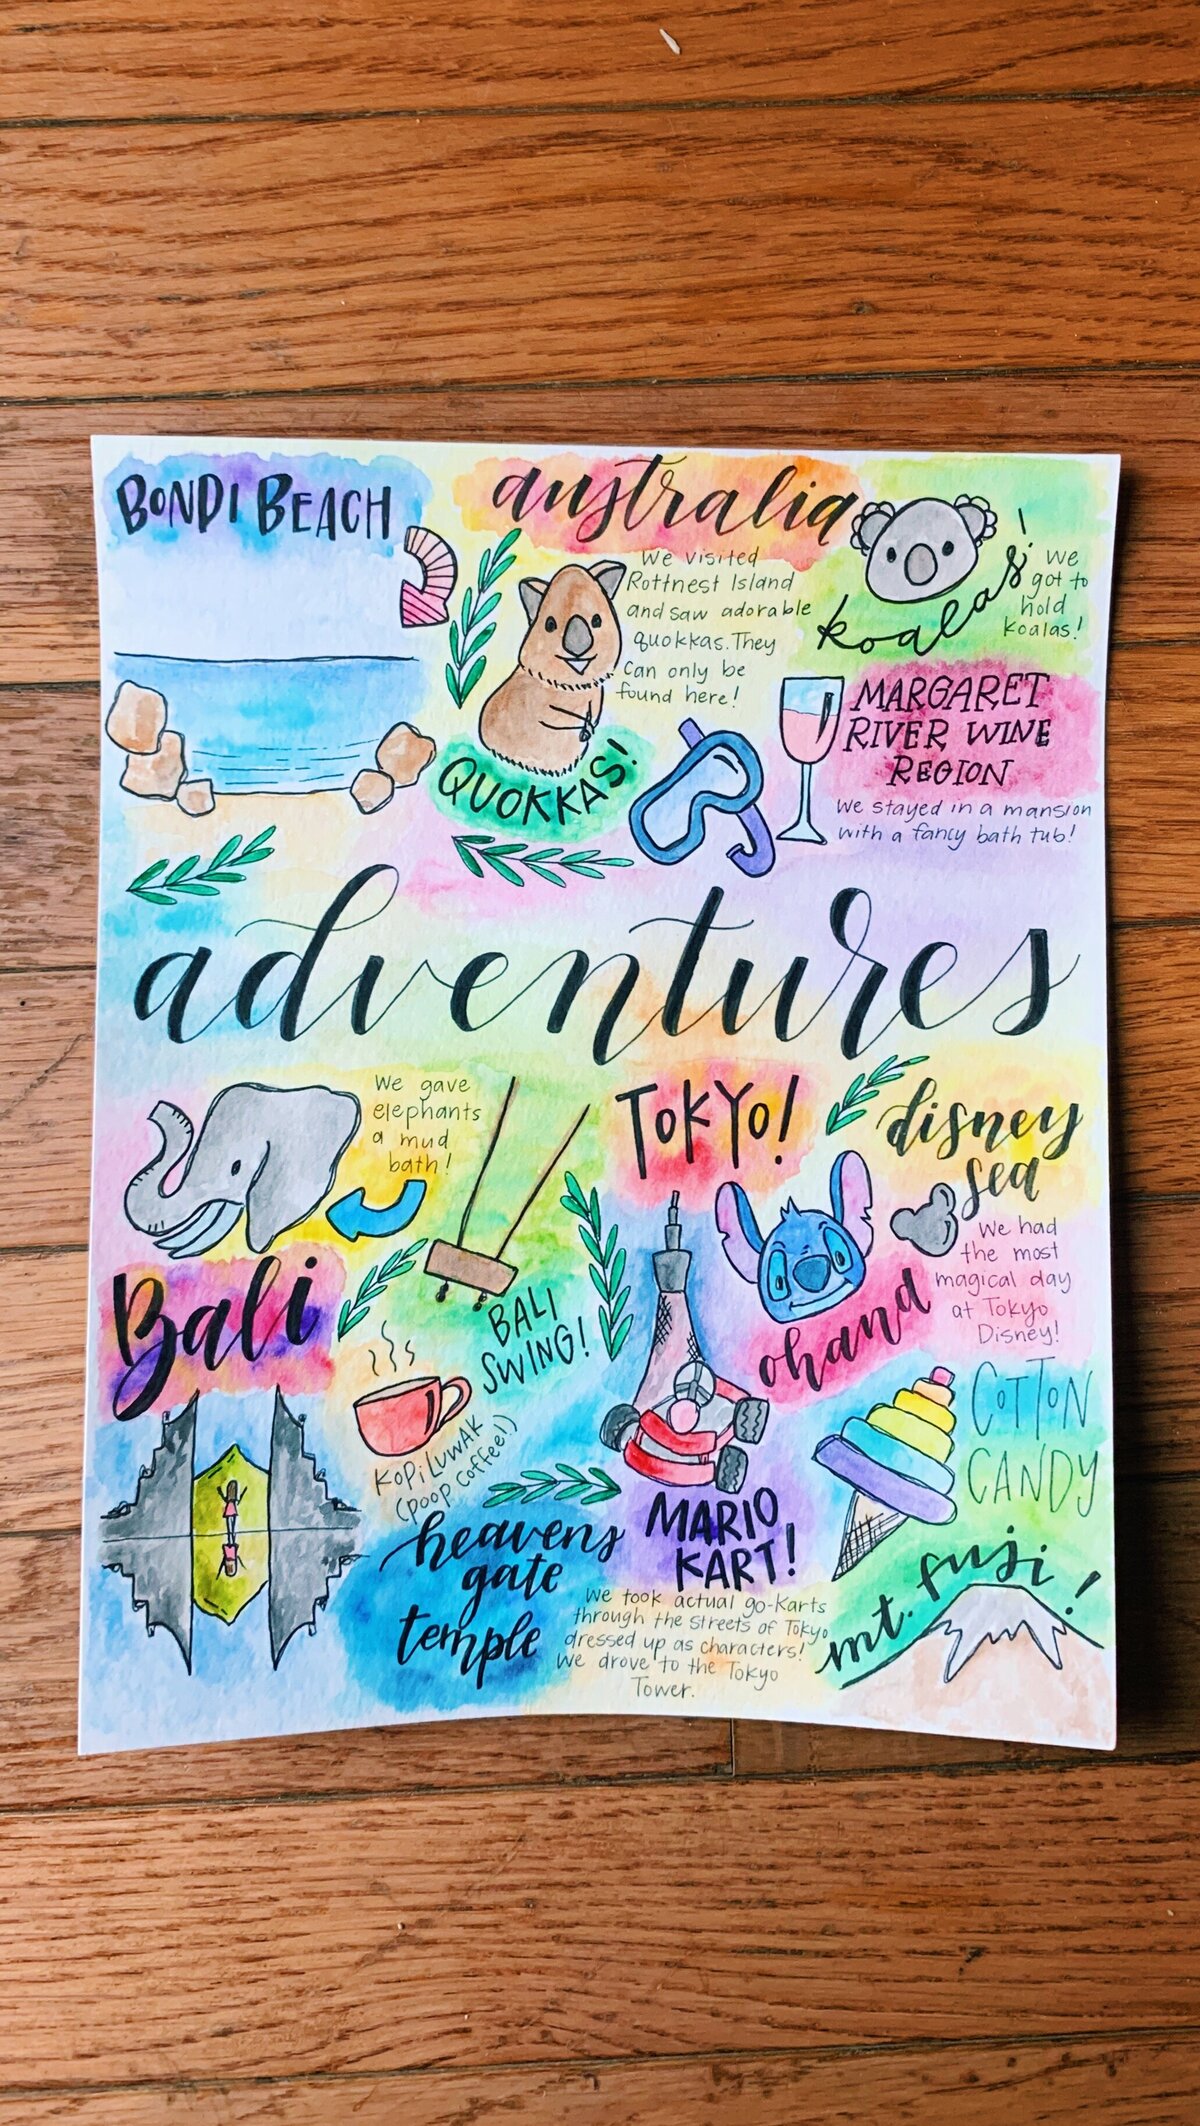 BONDI BEACH
australia
We visited
Rottnest Island
and saw adorable
quokkas. They
can only be
found here!
QUOKKAS!
koalas!
We
got to
hold
koalas!
MARGARET
RIVER WINE
REGION
We stayed in a mansion
with a fancy bath tub!
adventures
We gave
elephants
a mud
bath!
Bali
BALI
SWING!
KOPI LUWAK
(POOP COFFEE!)
heavens
gate
temple
TOKYO!
disney
sea
We had
the most
magical day
at Tokyo
Disney!
ohana
COTTON
CANDY
MARIO
KART!
We took actual go-karts
through the streets of Tokyo
dressed up as characters!
We drove to the Tokyo
Tower.
mt. fuji!